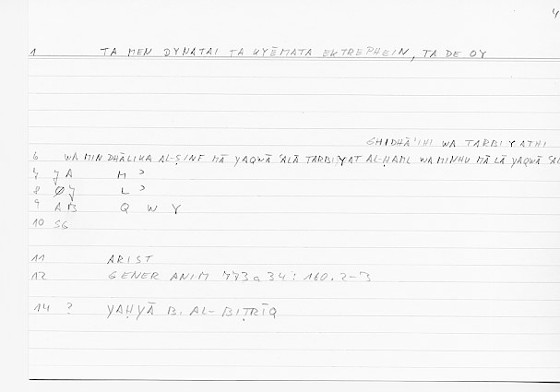 4
1 TA MEN DYNATAI TA KYĒMATA EKTREPHEIN, TA DE OY
GHIDHĀ'IHI WA TARBIYATHI
6 WA MIN DHĀLIKA AL-ṢINF MĀ YAQWĀ ʿALĀ TARBIYAT AL-ḤAML WA MINHU MĀ LĀ YAQWĀ ʿAL
7 J A M ʾ
8 J L ʾ
9 A B Q W Y
10 SG
11 ARIST
12 GENER ANIM 773a34: 160.2-3
14 ? YAḤYĀ B. AL-BIṬRĪQ